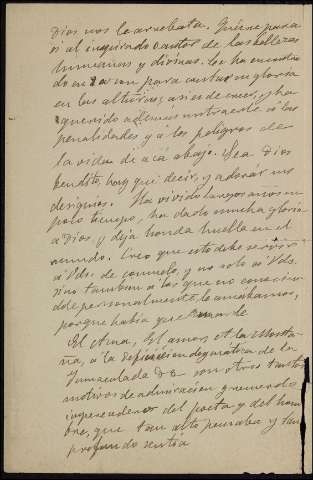 Dios nos le arrebata. Quiere para
sí al inspirado cantor de las bellezas
humanas y divinas. Le ha encontra
do en sazon para cantar su gloria
en las alturas, asi es de creer, y ha
querido además sustraerle á las
penalidades y á los peligros de
la vida de acá abajo. Sea Dios
bendito, hay que decir, y adorar sus
designios. Ha vivido largos años en
poco tiempo, ha dado mucha gloria
a Dios, y deja honda huella en el
mundo. Creo que esto debe servir
á Vds. de consuelo, y no solo á Vds.
sino tambien á los que no conocien
dole personalmente, le amabamos,
porque habia que amarle
El Ama, El amo, A la Monta
ña, á la definicion dogmatica de la
Inmaculada &a son otros tantos
motivos de admiracion y
del poeta y del hom
bre, que tan alto pensaba y tan
profundo sentia